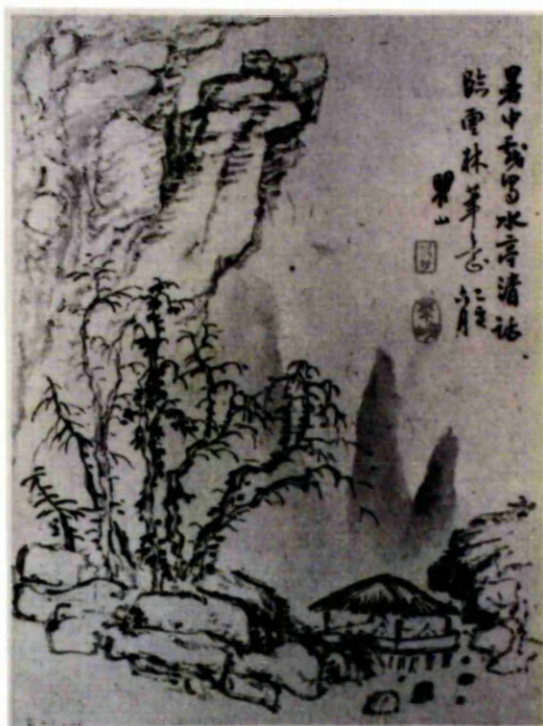 暑中戲寫水亭清話
臨雲林筆意 六月
瞿山